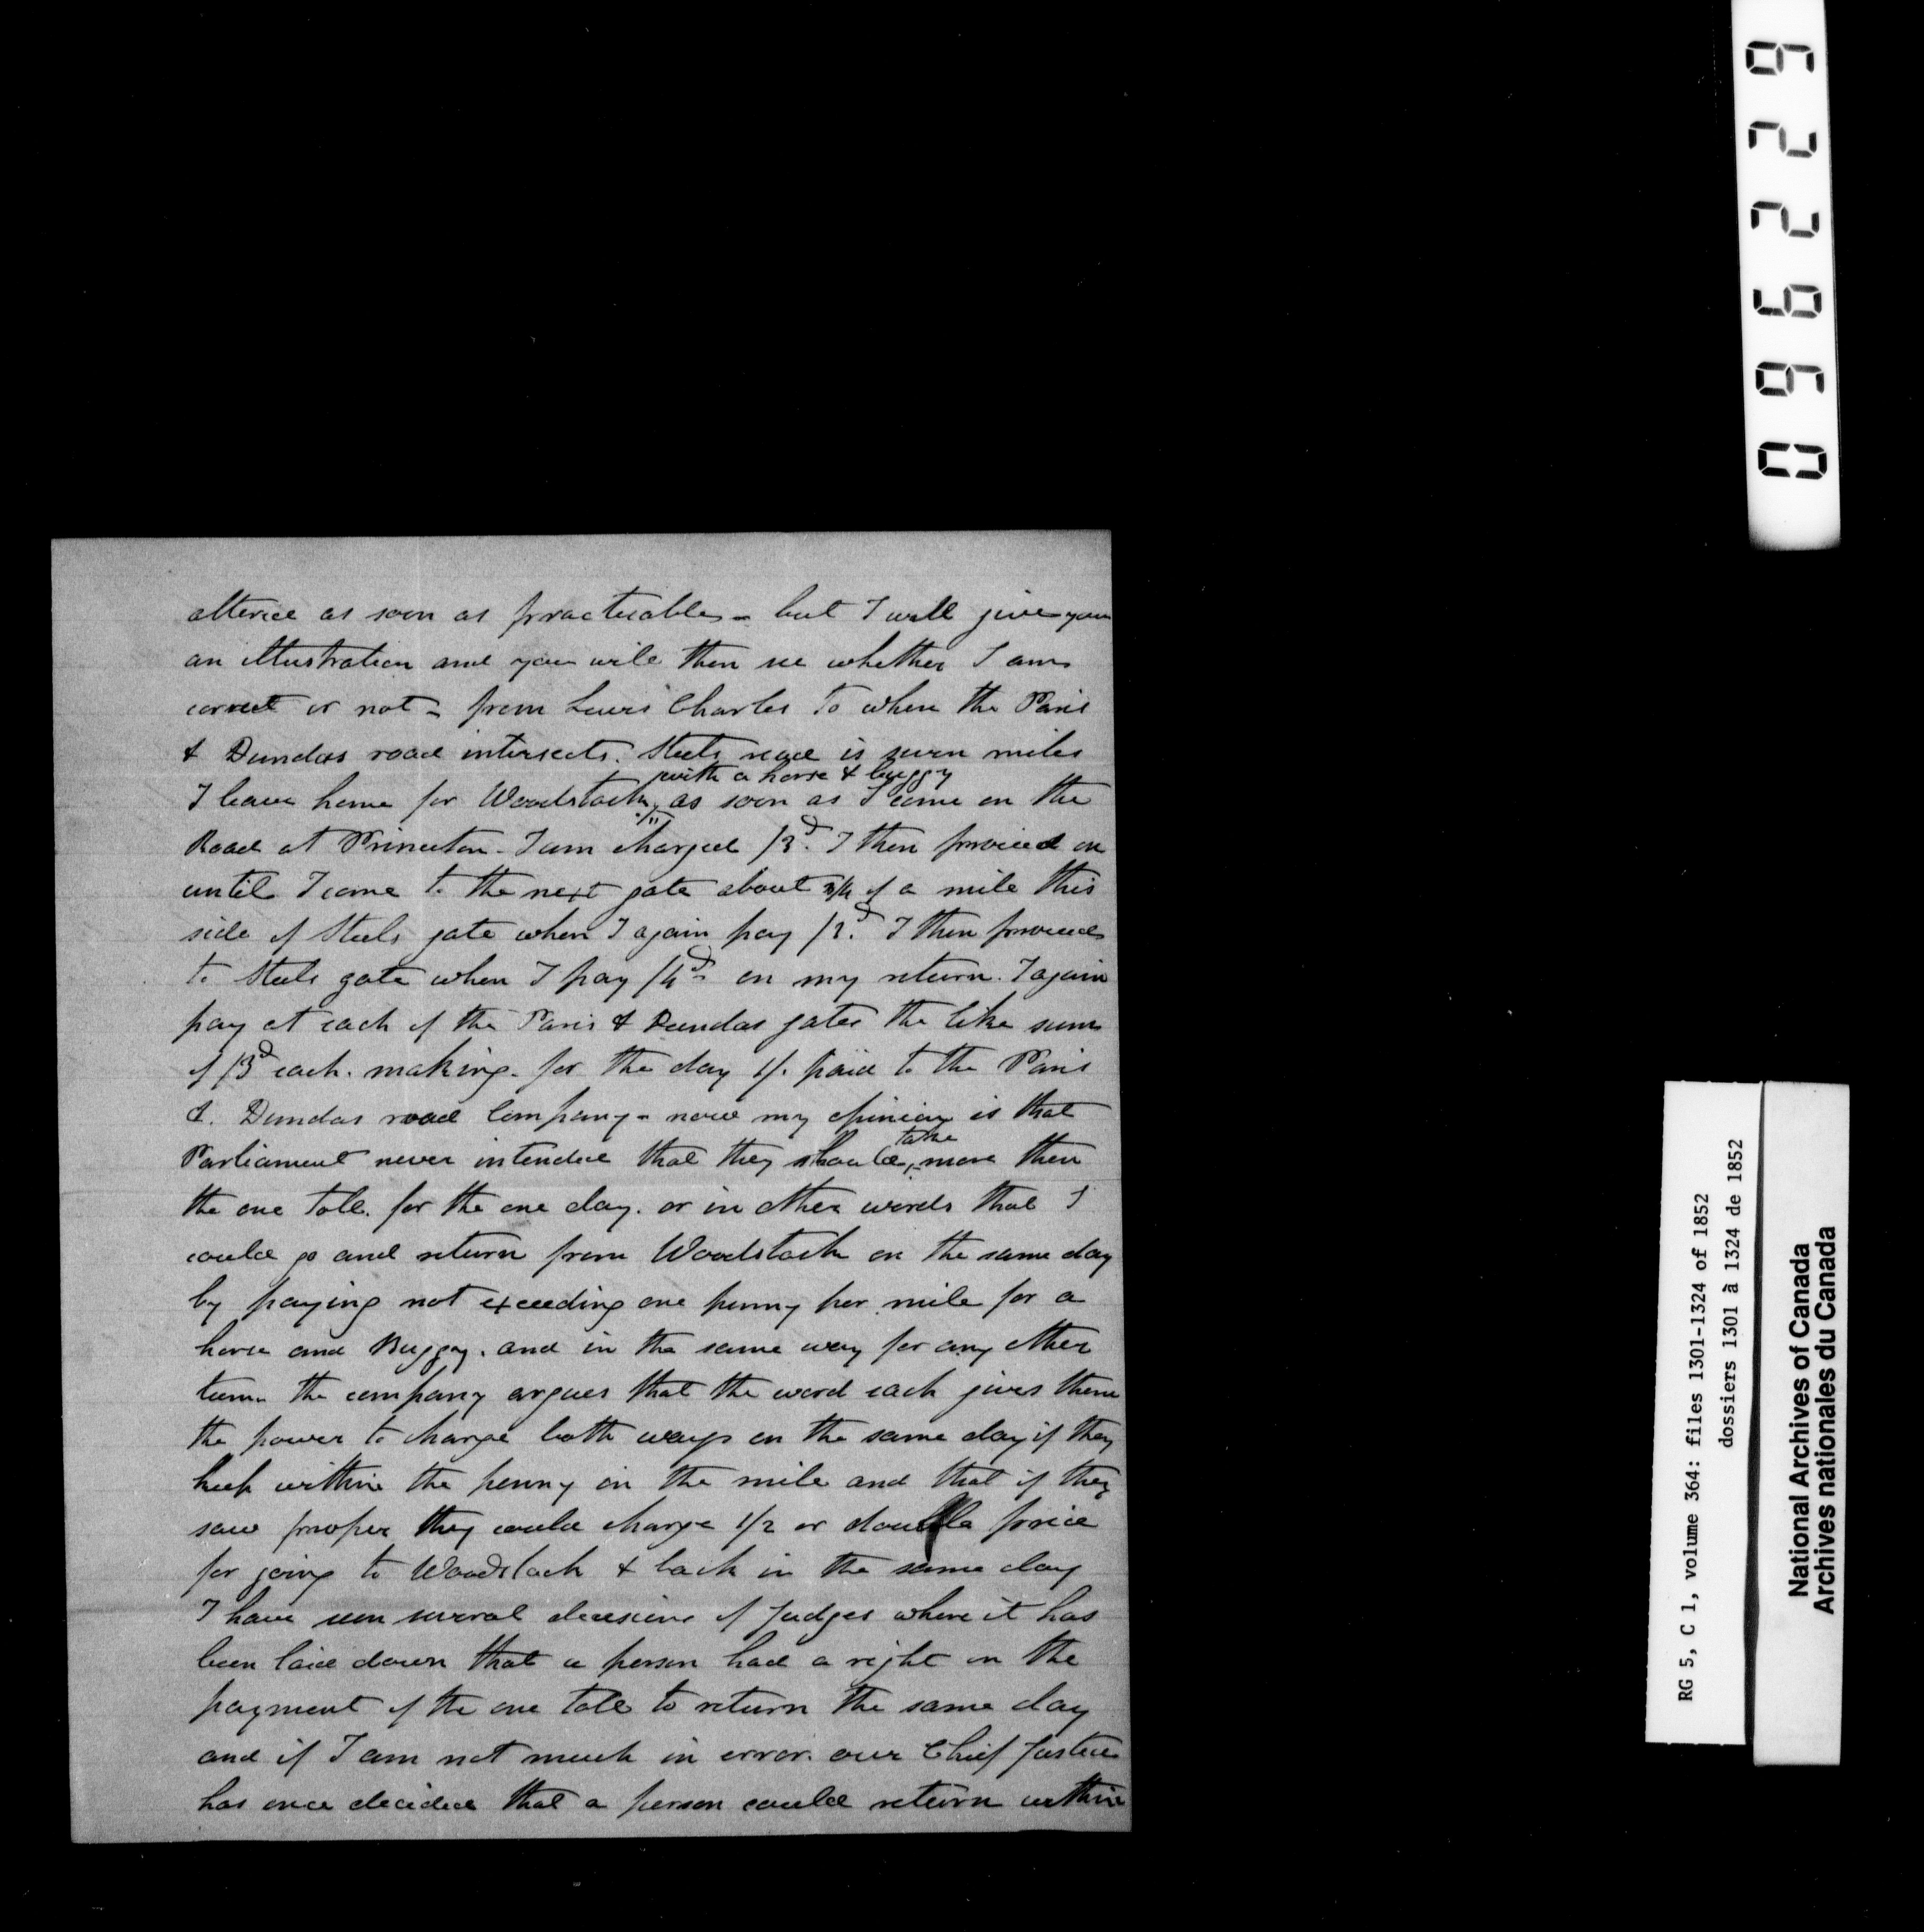 altered as soon as practicable - but I will give you
an illustration and you will then see whether I am
correct or not - from Lewis Charles to where the Paris
& Dundas road intersects. Steels road is seven miles
with a horse & buggy
I leave home for Woodstock, as soon as I come on the
Road at Princeton - I am charged /3d. I then proceed on
until I come to the next gate about 3/4 of a mile this
side of Steels gate when I again pay /3d. I then proceed
to Steels gate when I pay /4d - on my return. I again
pay at each of the Paris & Dundas gates the like sum
of /3d each. making - for the day 1/. paid to the Paris
&. Dundas road Company - now my opinion is that
take
Parliament never intended that they should, more then
the one toll. for the one day. or in other words that I
could go and return from Woodstock on the same day
by paying not exceeding one penny per mile for a
horse and Buggy. and in the same way for any other
team. the company argues that the word each gives them
the power to charge both ways on the same day if they
keep within the penny in the mile and that if they
saw proper they could charge 1/2 or double price
for going to Woodstock & back in the same day
I have seen several decisions of Judges where it has
been laid down that a person had a right on the
payment of the one toll to return the same day
and if I am not much in error. our Chief Justice
has once decided that a person could return within
096229
RG 5, C 1, volume 364: files 1301-1324 of 1852
dossiers 1301 à 1324 de 1852
National Archives of Canada
Archives nationales du Canada